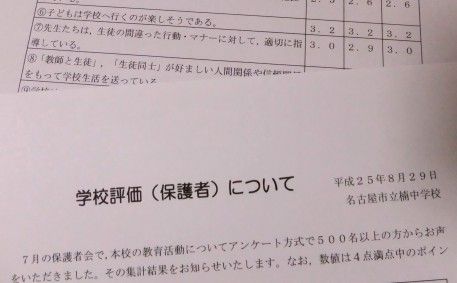 ⑥子どもは学校へ行くのが楽しそうである。 3．2 3．2 3．2
⑦先生たちは，生徒の間違った行動・マナーに対して，適切に指
導している。 3．0 2．9 3．0
⑧「教師と生徒」，「生徒同士」が好ましい人間関係や信頼関
をもって学校生活を送っている
学校評価（保護者）について
平成２５年８月２９日
名古屋市立楠中学校
７月の保護者会で，本校の教育活動についてアンケート方式で５００名以上の方からお声
をいただきました。その集計結果をお知らせいたします。なお，数値は４点満点中のポイン